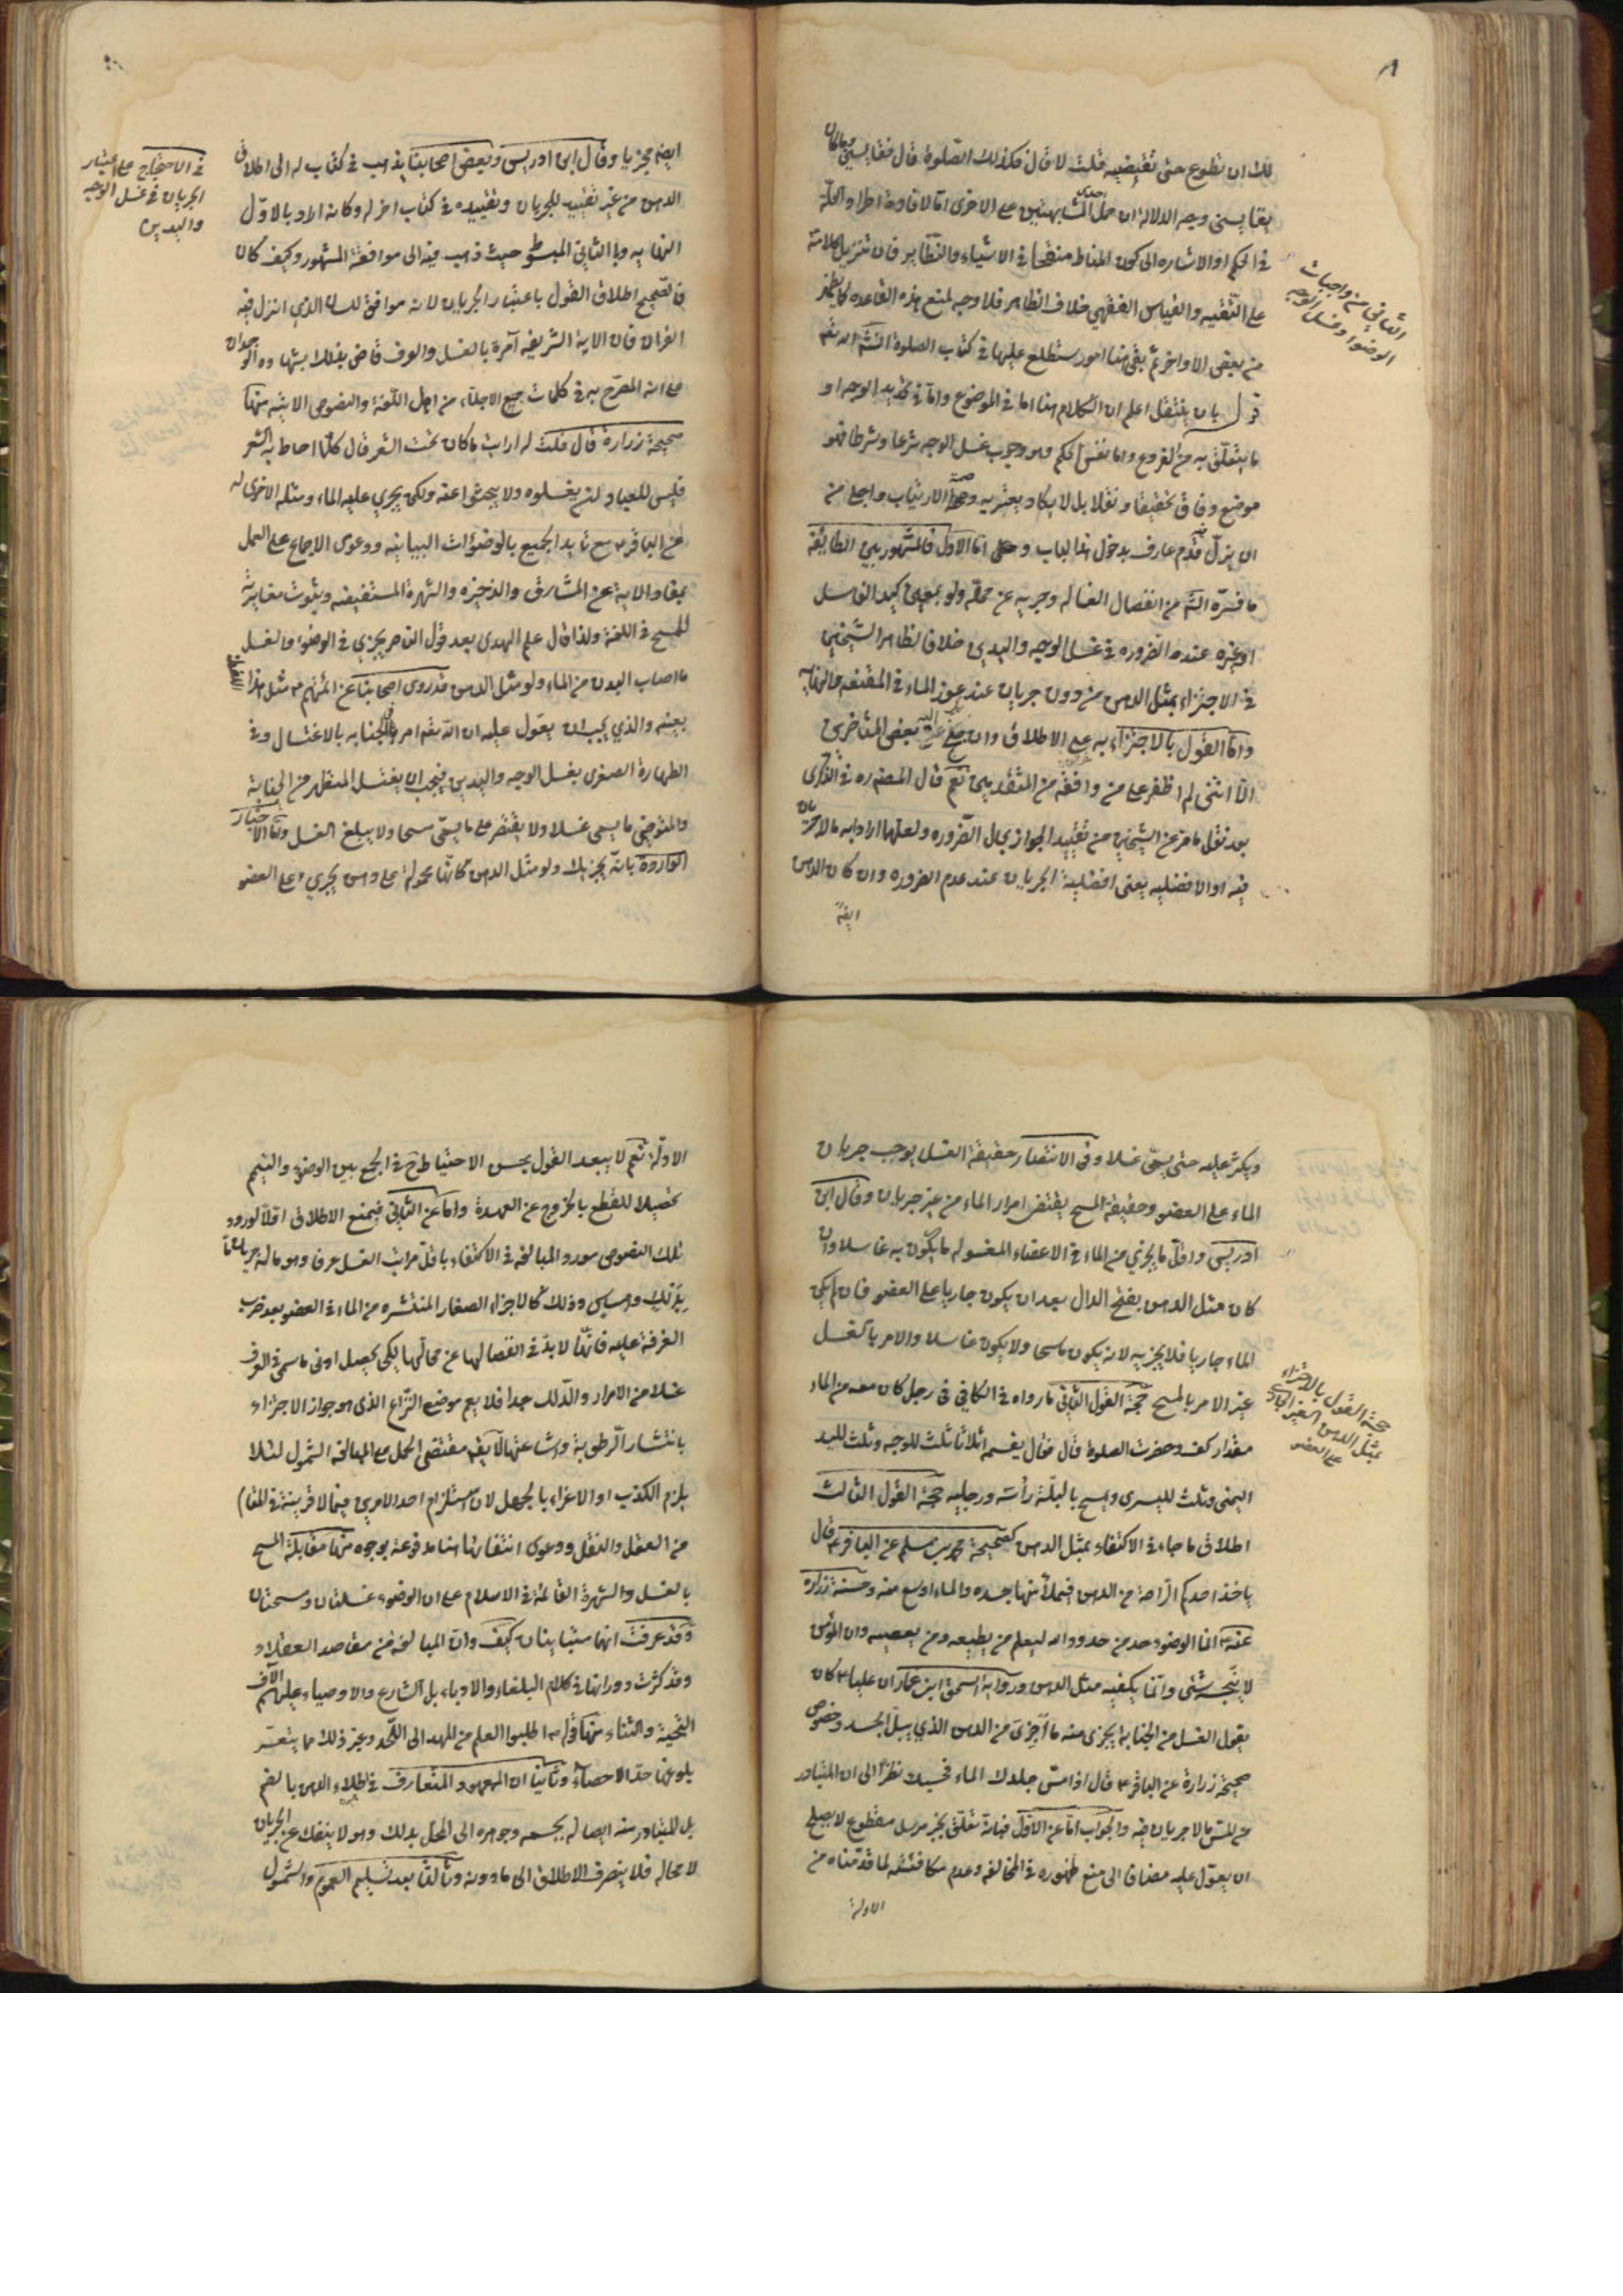 لك ان تطوع حتى تقضيه قلت لا قال فكذلك الصلوة قال فقايسني وما كان
يقايسني وجه الدلالة ان حمل احدى المشابهتين على الاخرى اما لافادة اطراد العلة
في الحكم او الاشاره الى كون المناط منقحا في الاشياء والنظاير فان تنزيل كلامه
على التقيه والقياس الفقهي خلاف الظاهر فلا وجه لمنع هذه القاعده كما يظهر
من بعض الاواخر ثم بقي هنا امور ستطلع عليها في كتاب الصلوة انشاء الله تعالى
بان ينتقل اعلم ان الكلام هنا اما في الموضوع واما في تحديد الوجه او
ما يتعلق به من الفروع واما نفس الحكم وهو وجوب غسل الوجه شرعا وشرطا فهو
موضع وفاق تحقيقا ونقلا بل لا يكاد يعتريه وصمة الارتياب واجل من
ان يزل فيه قدم عارف بدخول هذا الباب اما الاول فالمشهور بين الطائفة
ما فسره الشهيد من انفصال الغساله وجريه عن محله ولو بمعين كيد الغاسل
او غيره عنده الضروره في غسل الوجه واليدين خلافا لظاهر الشيخين
في الاجتزاء بمثل الدهن من دون جريان عند عوز الماء في المقنعه والنهايه
واما القول بالاجتزاء به على الاطلاق وان بعض المتاخرين
الا انني لم اظفر على من وافقه من المتقدمين نعم قال المص ره في الذكرى
بعد نقل ما مر عن الشيخين من تقييد الجواز بحال الضروره ولعلهما ارادا به ما لا جريان
فيه او الافضليه يعنى افضلية الجريان عند عدم الضروره وان كان الدهن
ايضا
الثاني من واجبات
الوضوء وغسل الوجه
ايضا مجزيا وقال ابن ادريس وبعض اصحابنا يذهب في كتاب له الى اطلاق
الدهن من غير تقييد للجريان وتقييده في كتاب اخر له وكانه اراد بالاول
النهايه وبالثاني المبسوط حيث ذهب فيه الى موافقة المشهور وكيف كان
فالصحيح اطلاق القول باعتبار الجريان لانه موافق لسان الذي انزل فيه
القران فان الاية الشريفه آمرة بالغسل والعرف قاض بذلك بشهادة الوجدان
على انه المصرح به في كلمات جميع الاجلاء من اهل اللغة والنصوص الاتيه منها
صحيحة زرارة قال قلت له ارايت ما كان تحت الشعر قال كلما احاط به الشعر
فليس للعباد ان يغسلوه ولا يبحثوا عنه ولكن يجري عليه الماء ومثله الاخرى له
عن الباقر ع مع تايد الجميع بالوضوءات البيانيه ودعوى الاجماع على العمل
بمفاد الاية عن المشارق والذخيره والشهرة المستفيضه وثبوت مغايرته
للمسح في اللغة ولذا قال علم الهدى بعد قول الناصر يجزي في الوضوء والغسل
ما اصاب البدن من الماء ولو مثل الدهن قد روى اصحابنا عن ائمتهم ع مثل هذا اللفظ
بعينه والذي يجب ان يعول عليه ان الله تعالى امر في الجنابه بالاغتسال وفي
الطهارة الصغرى بغسل الوجه واليدين فيجب ان يغتسل المتطهر من الجنابة
والمتوضي ما يسمى غسلا ولا يقتصر على ما يسمى مسحا ولا يبلغ الغسل واما الاخبار
الواردة بانه يجزيك ولو مثل الدهن فانها محمولة على دهن يجري على العضو
في الاحتجاج على اعتبار
الجريان في غسل الوجه
واليدين
ويكثر عليه حتى يسمى غسلا وفي الانتصار حقيقة الغسل يوجب جريان
الماء على العضو وحقيقة المسح يقتضي امرار الماء من غير جريان وقال ابن
ادريس واقل ما يجزي من الماء في الاعضاء المغسوله ما يكون به غاسلا وان
كان مثل الدهن بفتح الدال بعد ان يكون جاريا على العضو فان لم يكن
الماء جاريا فلا يجزيه لانه يكون ماسحا ولا يكون غاسلا والامر بالغسل
غير الامر بالمسح حجة القول الثاني ما رواه في الكافي في رجل كان معه من الماء
مقدار كف وحضرت الصلوة قال فقال يقسمه اثلاثا ثلث للوجه وثلث لليد
اليمنى وثلث لليسرى ويمسح بالبلة رأسه ورجليه حجة القول الثالث
اطلاق ما جاء في الاكتفاء بمثل الدهن كصحيحة محمد بن مسلم عن الباقر ع قال
ياخذ احدكم الراحة من الدهن فيملأ بها جسده والماء اوسع منه وحسنة زراره
عنه ع انما الوضوء حد من حدود الله ليعلم من يطيعه ومن يعصيه وان المؤمن
لا ينجسه شئ وانما يكفيه مثل الدهن ورواية اسحق ابن عمار ان عليا ع كان
يقول الغسل من الجنابة يجزى منه ما أجزى من الدهن الذي يبل الجسد وخصوص
صحيحة زرارة عن الباقر ع قال اذا مس جلدك الماء فحسبك نظرا الى ان المتبادر
من المس ما لا جريان فيه والجواب اما عن الاول فبانه تعلق بخبر مرسل مقطوع لا يصلح
ان يعول عليه مضافا الى منع ظهوره في المخالفه وعدم مكافئته لما قدمناه من
الادلة
حجة القول بالاجتزاء
بمثل الدهن الغير الجاري
على العضو
الادلة نعم لا يبعد القول بحسن الاحتياط ح في الجمع بين الوضوء والتيمم
تحصيلا للقطع بالخروج عن العهدة واما عن الثاني فبمنع الاطلاق اولا لورود
تلك النصوص مورد المبالغه في الاكتفاء باقل مراتب الغسل عرفا وهو ماله جريان ما
وذلك كالاجزاء الصغار المنتشره من الماء في العضو بعد ضرب
الغرفة عليه فانها لابد في انفصالها عن محالها لكي يحصل ادنى ما سمى في العرف
غسلا من الامرار والدلك جدا فلا يعم موضع النزاع الذى هو جواز الاجتزاء
بانتشار الرطوبة واشاعتها لا يقال مقتضى الحمل على المبالغه الشمول لئلا
يلزم الكذب او الاغراء بالجهل لان استلزام احد الامرين فيما لا قرينة في المقام
من العقل والنقل ودعوى انتفائها هنا مدفوعة بوجوه منها مقابلة المسح
بالغسل والشهرة القائمة في الاسلام على ان الوضوء غسلتان ومسحتان
وقد عرفت انهما متباينان كيف وان المبالغه من مقاصد العقلاء
وقد كثرت دورانها في كلام البلغاء والادباء بل الشارع والاوصياء عليهم الآف
التحية والثناء منها قوله ع اطلبوا العلم من المهد الى اللحد وغير ذلك مما يتعسر
بلوغها حد الاحصاء وثانيا ان المعهود المتعارف في اطلاء الدهن بالضم
بل المتبادر منه ايصاله بجسمه وجوهره الى المحل بدلك وهو لا ينفك عن الجريان
لا محاله فلا ينصرف الاطلاق الى ما دونه وثالثا بعد تسليم العموم والشمول